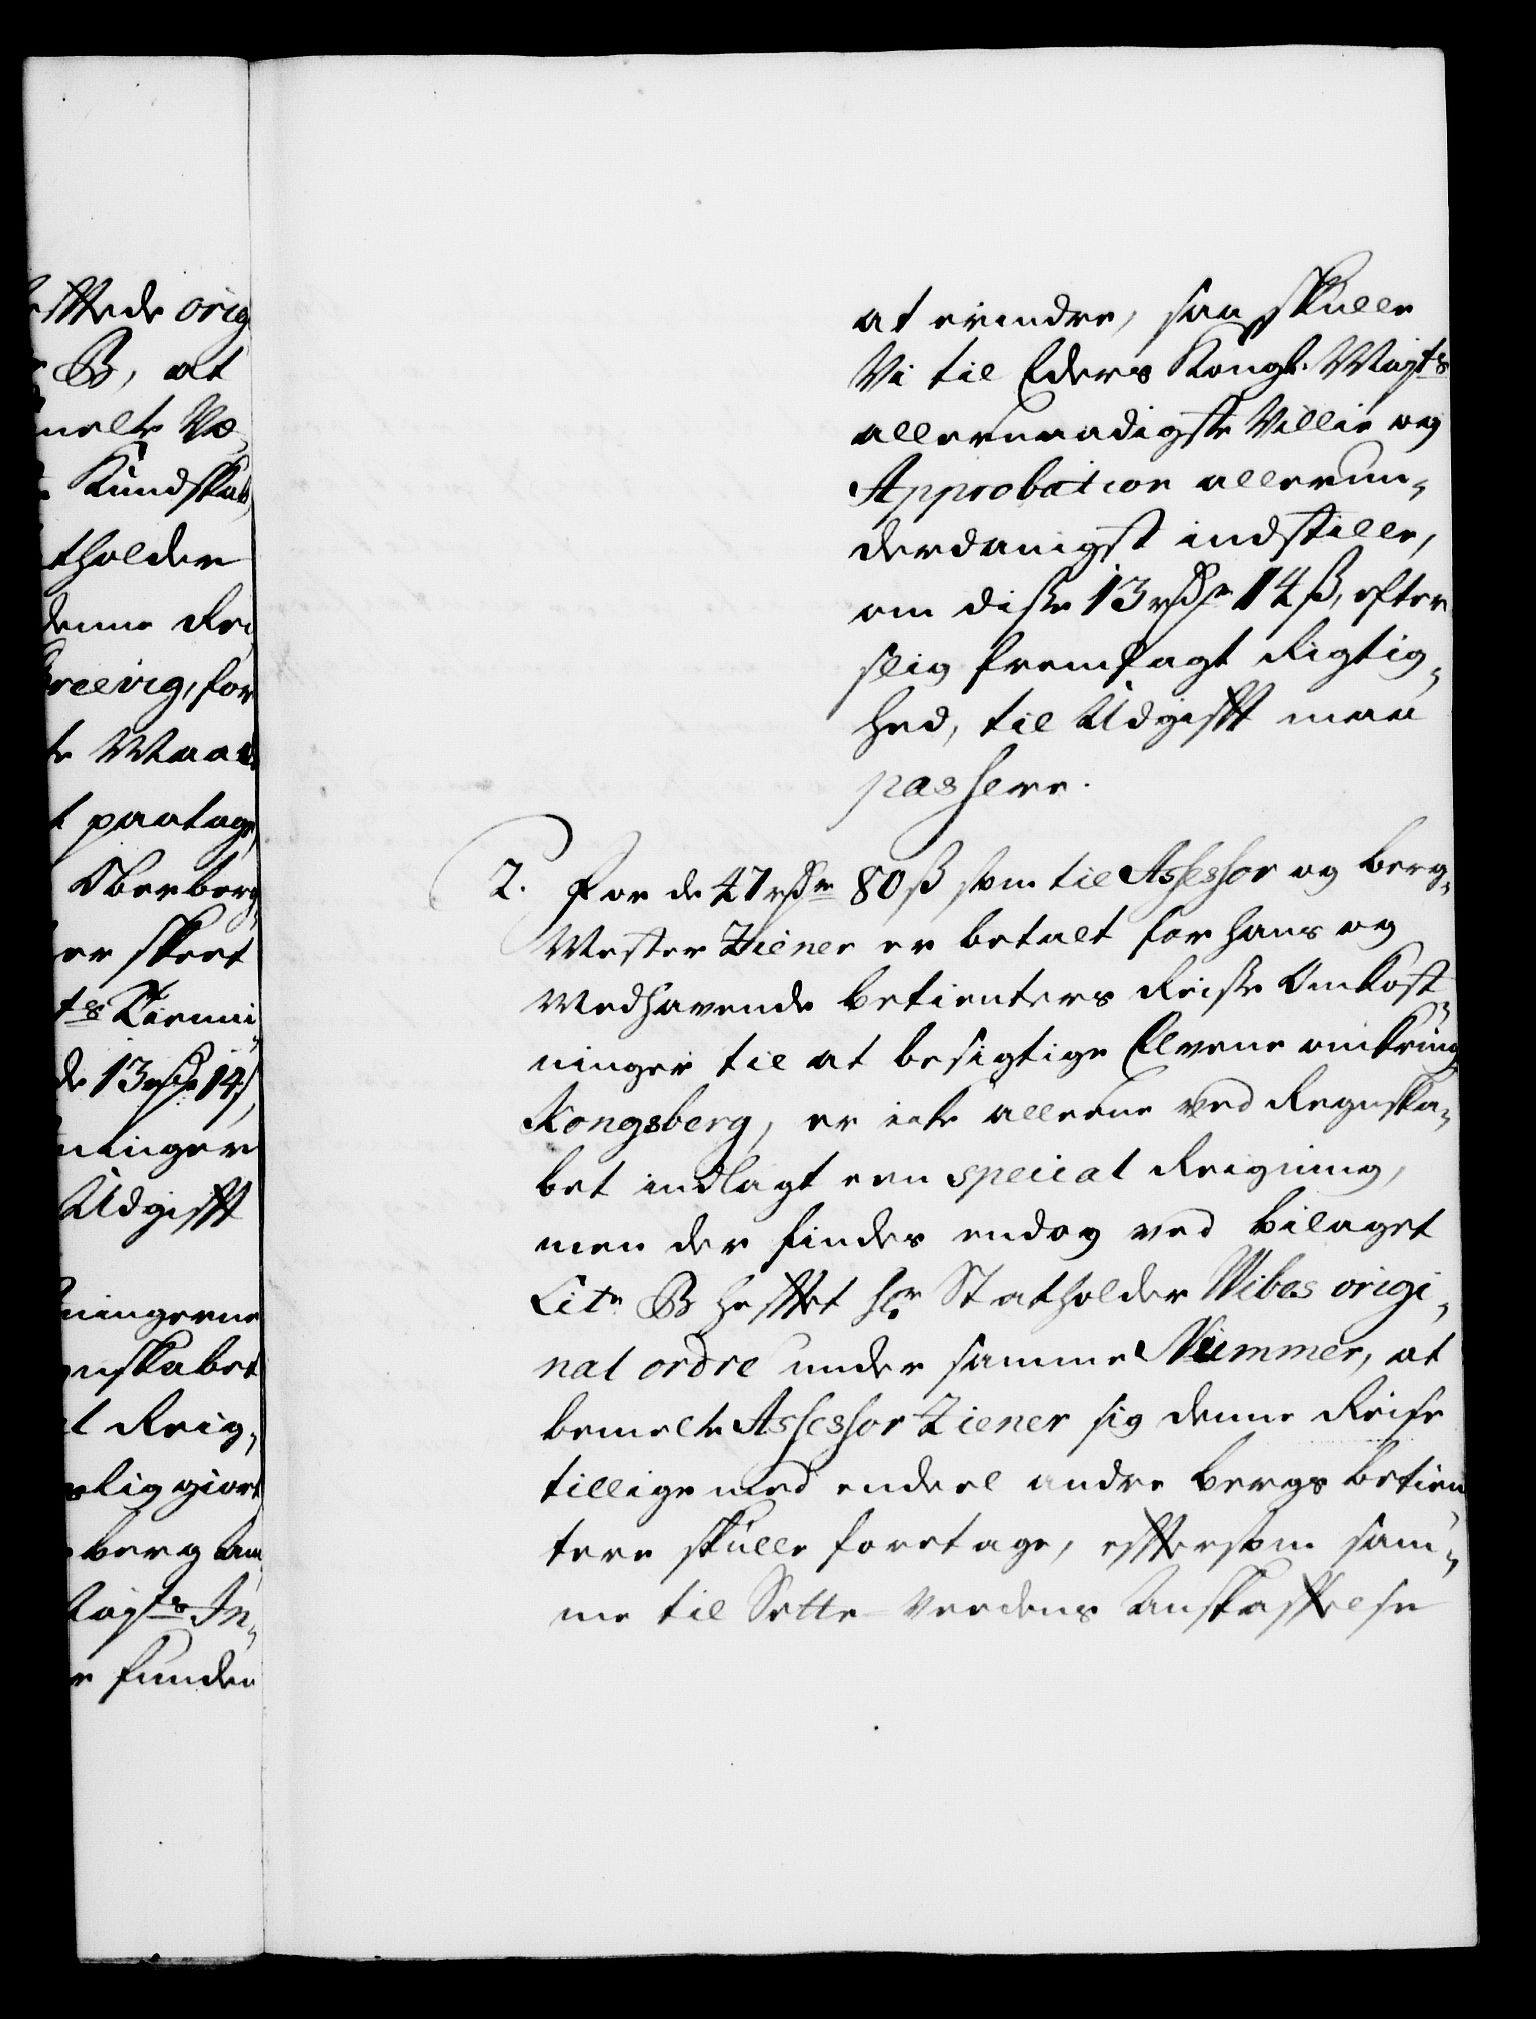 hefftede orig
B, at
melte Væ-
Kundskab
tholder
denne Rei
Breevig, for
te Maa
t paatage
Oberberg
er skeet
ts Tienni-
de 13 rdr 14 ß,
ninger
Udgifft
ningerne
gnskabet
l Reig-
lig giort
berg Am
Mayts In-
funden
at erindre, saa skulle
Vi til Eders Kongl. Mayts
allernaadigste Villie og
Approbation allerun-
derdanigst indstille,
om diße 13 rdr 14 ß, efter
slig fremsagt Rigtig-
hed, til Udgifft maa
passere.
2. For de 47 rdr 80 ß som til Assessor og berg-
Mester Ziener er betalt for hans og
Medhavende betienters Reiße Omkost-
ninger til at besigtige Elvene omkring
Kongsberg, er icke alleene ved Regnska-
bet indlagt een special Reigning,
men der findes endog ved bilaget
Litr B hefftet hr Statholder Wibes origi-
nal ordre under samme Nummer, at
bemelte Assessor Ziener sig denne Reise
tillige med endeel andre bergs betien
tere skulle foretage, efftersom sam-
me til Sette-Veedens Anskaffelse